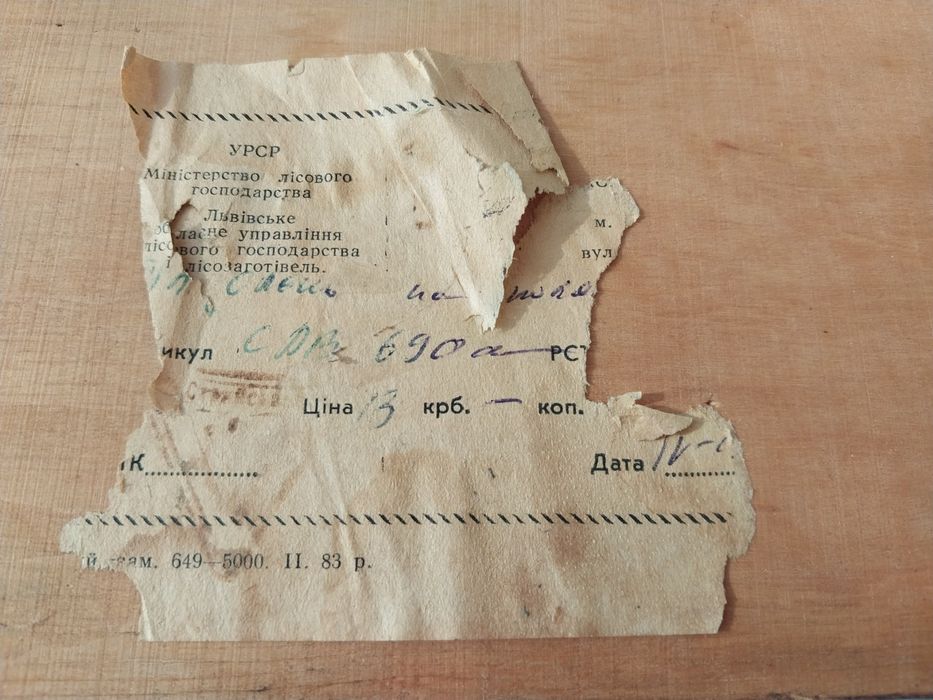 УРСР
Міністерство лісового
господарства
Львівське
обласне управління
лісового господарства м.
і лісозаготівель. вул
икул 690 а РСТ
Ціна 13 крб. — коп.
К Дата IV-
й, зам. 649—5000. II. 83 р.